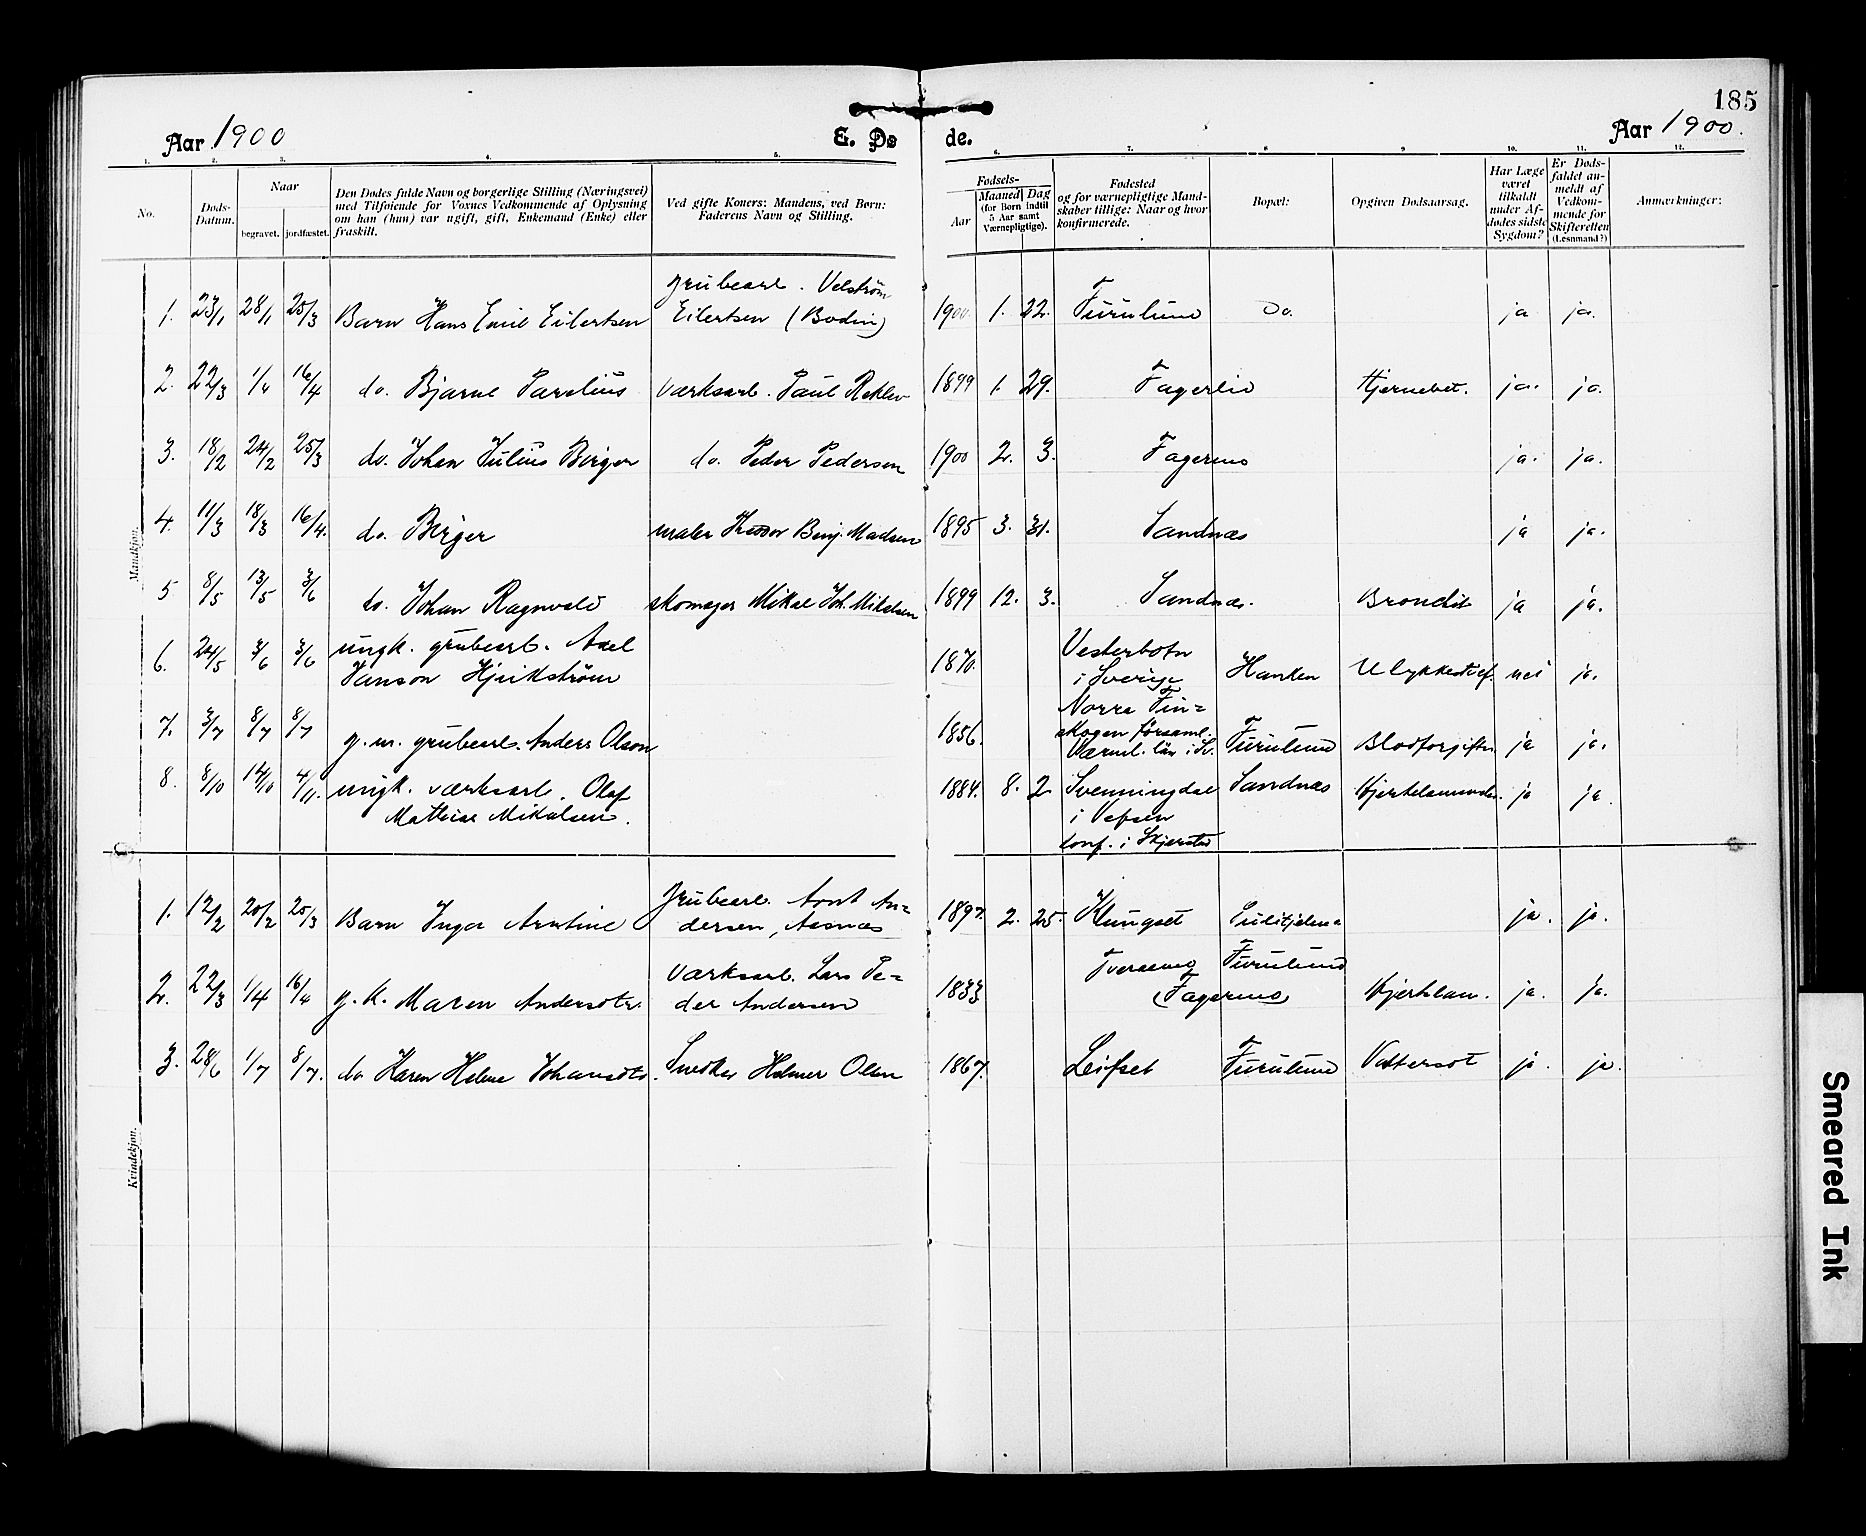 185
Aar 1900
E. Dø
de.
Aar 1900.
1. 2. 3. 4. 5. 6. 7. 8. 9. 10. 11. 12.
No.
Døds-
Datum.
Naar
begravet. jordfæstet.
Den Dødes fulde Navn og borgerlige Stilling (Næringsvei)
med Tilføiende for Voxnes Vedkommende af Oplysning
om han (hun) var ugift, gift, Enkemand (Enke) eller
fraskilt.
Ved gifte Koners: Mandens, ved Børn:
Faderens Navn og Stilling.
Fødsels-
Aar
Maaned Dag
(for Børn indtil
5 Aar samt
Værnepligtige).
Fødested
og for værnepligtige Mand-
skaber tillige: Naar og hvor
konfirmerede.
Bopæl:
Opgiven Dødsaarsag.
Har Læge
været
tilkaldt
under Af-
dødes sidste
Sygdom?
Er Døds-
faldet an-
meldt af
Vedkom-
mende for
Skifteretten
(Lensmand?)
Anmærkninger:
Mandkjøn.
grubearb. Velström
1. 23/1 28/1 25/3 Barn Hans Emil Eilertsen Eilertsen (Bodin) 1900. 1. 22. Furulund Do. ja ja.
2. 22/3 1/4 16/4 do. Bjarne Parelius værksarb. Paul 1899 1. 29. Fagerli Hjernebet. ja. ja.
3. 18/2 24/2 25/3 do. Johan Julius Birger do. Peder Pedersen 1900 2. 3. Fagermo ja. ja.
4. 11/3 18/3 16/4. do. Birger maler Benj. Madsen 1895 3. 31. Sandnæs ja ja.
5 8/5 13/5 3/6 do. Johan Ragnvald skomager Mikal Joh. Mikalsen 1899 12. 3. Sandnæs. Bronchit ja ja.
6. 24/5 3/6 3/6 ungk. grubearb. Axel
Janson Hjrikström 1870. Vesterbotn
i Sverige Hanken Ulykkestilf. nei ja.
7. 3/7 8/7 8/7 g. m. grubearb. Anders Olson 1856. Norra Fin-
skogen församl.
Værml. län i Sv. Furulund Blodforgiftn. ja ja.
8. 8/10 14/10 4/11. ungk. værksarb. Olaf
Mathias Mikalsen. 1884. 8. 2 Svenningdal
i Vefsen
konf. i Skjerstad Sandnæs ja ja.
Kvindekjøn.
1. 12/2 20/2 25/3 Barn Inga Arntine Grubearb. Arnt An-
dersen, Aasnæs 1897. 2. 25. Klungset Sulitjelma ja. ja.
2. 22/3 1/4 16/4 g. K. Maren Andersdtr. Værksarb. Lars Pe-
der Andersen 1833 Tveraamo Furulund
(Fagermo) Hjerteslam. ja. ja.
3. 28/6 1/7 8/7. do Karen Helene Johansdtr. Snedker Helmer Olsen 1867. Leifset Furulund Vattersot ja. ja.
Smeared Ink